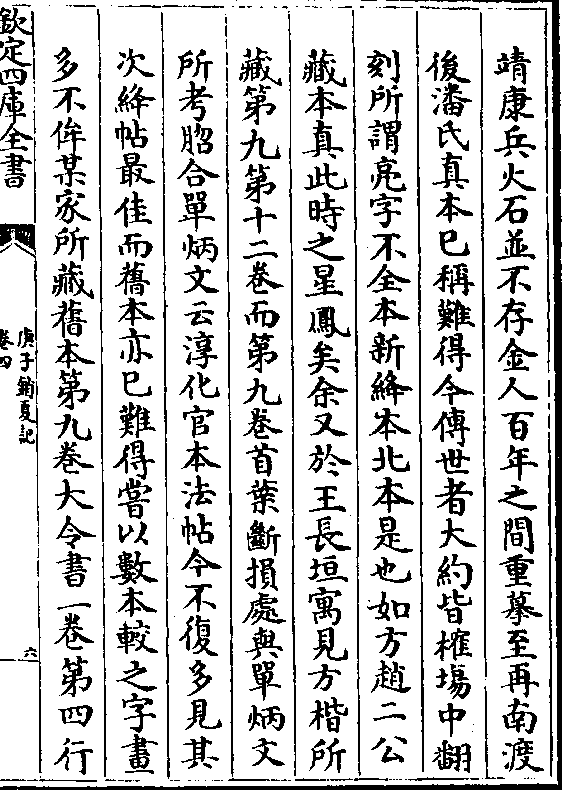 靖康兵火石並不存金人百年之間重摹至再南渡
後潘氏真本已稱難得今傳世者大約皆榷場中翻
刻所謂亮字不全本新絳本北本是也如方趙二公
藏本真此時之星鳳矣余又於王長垣寓見方楷所
藏第九第十二卷而第九卷首葉斷損處與單炳文
所考脗合單炳文云淳化官本法帖今不復多見其
次絳帖最佳而舊本亦已難得嘗以數本較之字畫
多不侔某家所藏舊本第九卷大令書一卷第四行
欽定四庫全書
庚子銷夏記
卷四
六